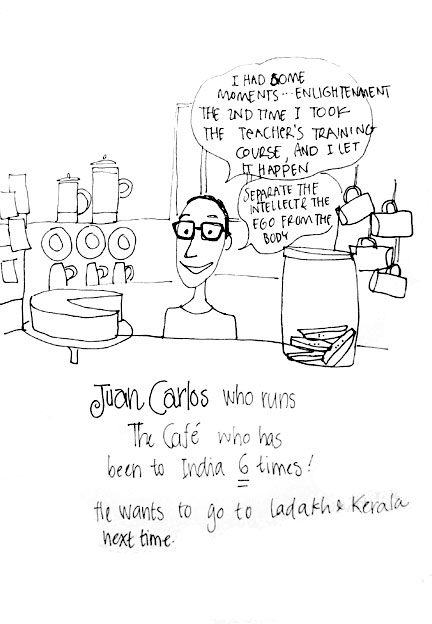 I HAD SOME
MOMENTS...ENLIGHTENMENT
THE 2ND TIME I TOOK
THE TEACHER'S TRAINING
COURSE, AND I LET
IT HAPPEN
SEPARATE THE
INTELLECT & THE
EGO FROM THE
BODY
Juan Carlos who runs
The Café who has
been to India 6 times!
He wants to go to ladakh & Kerala
next time.